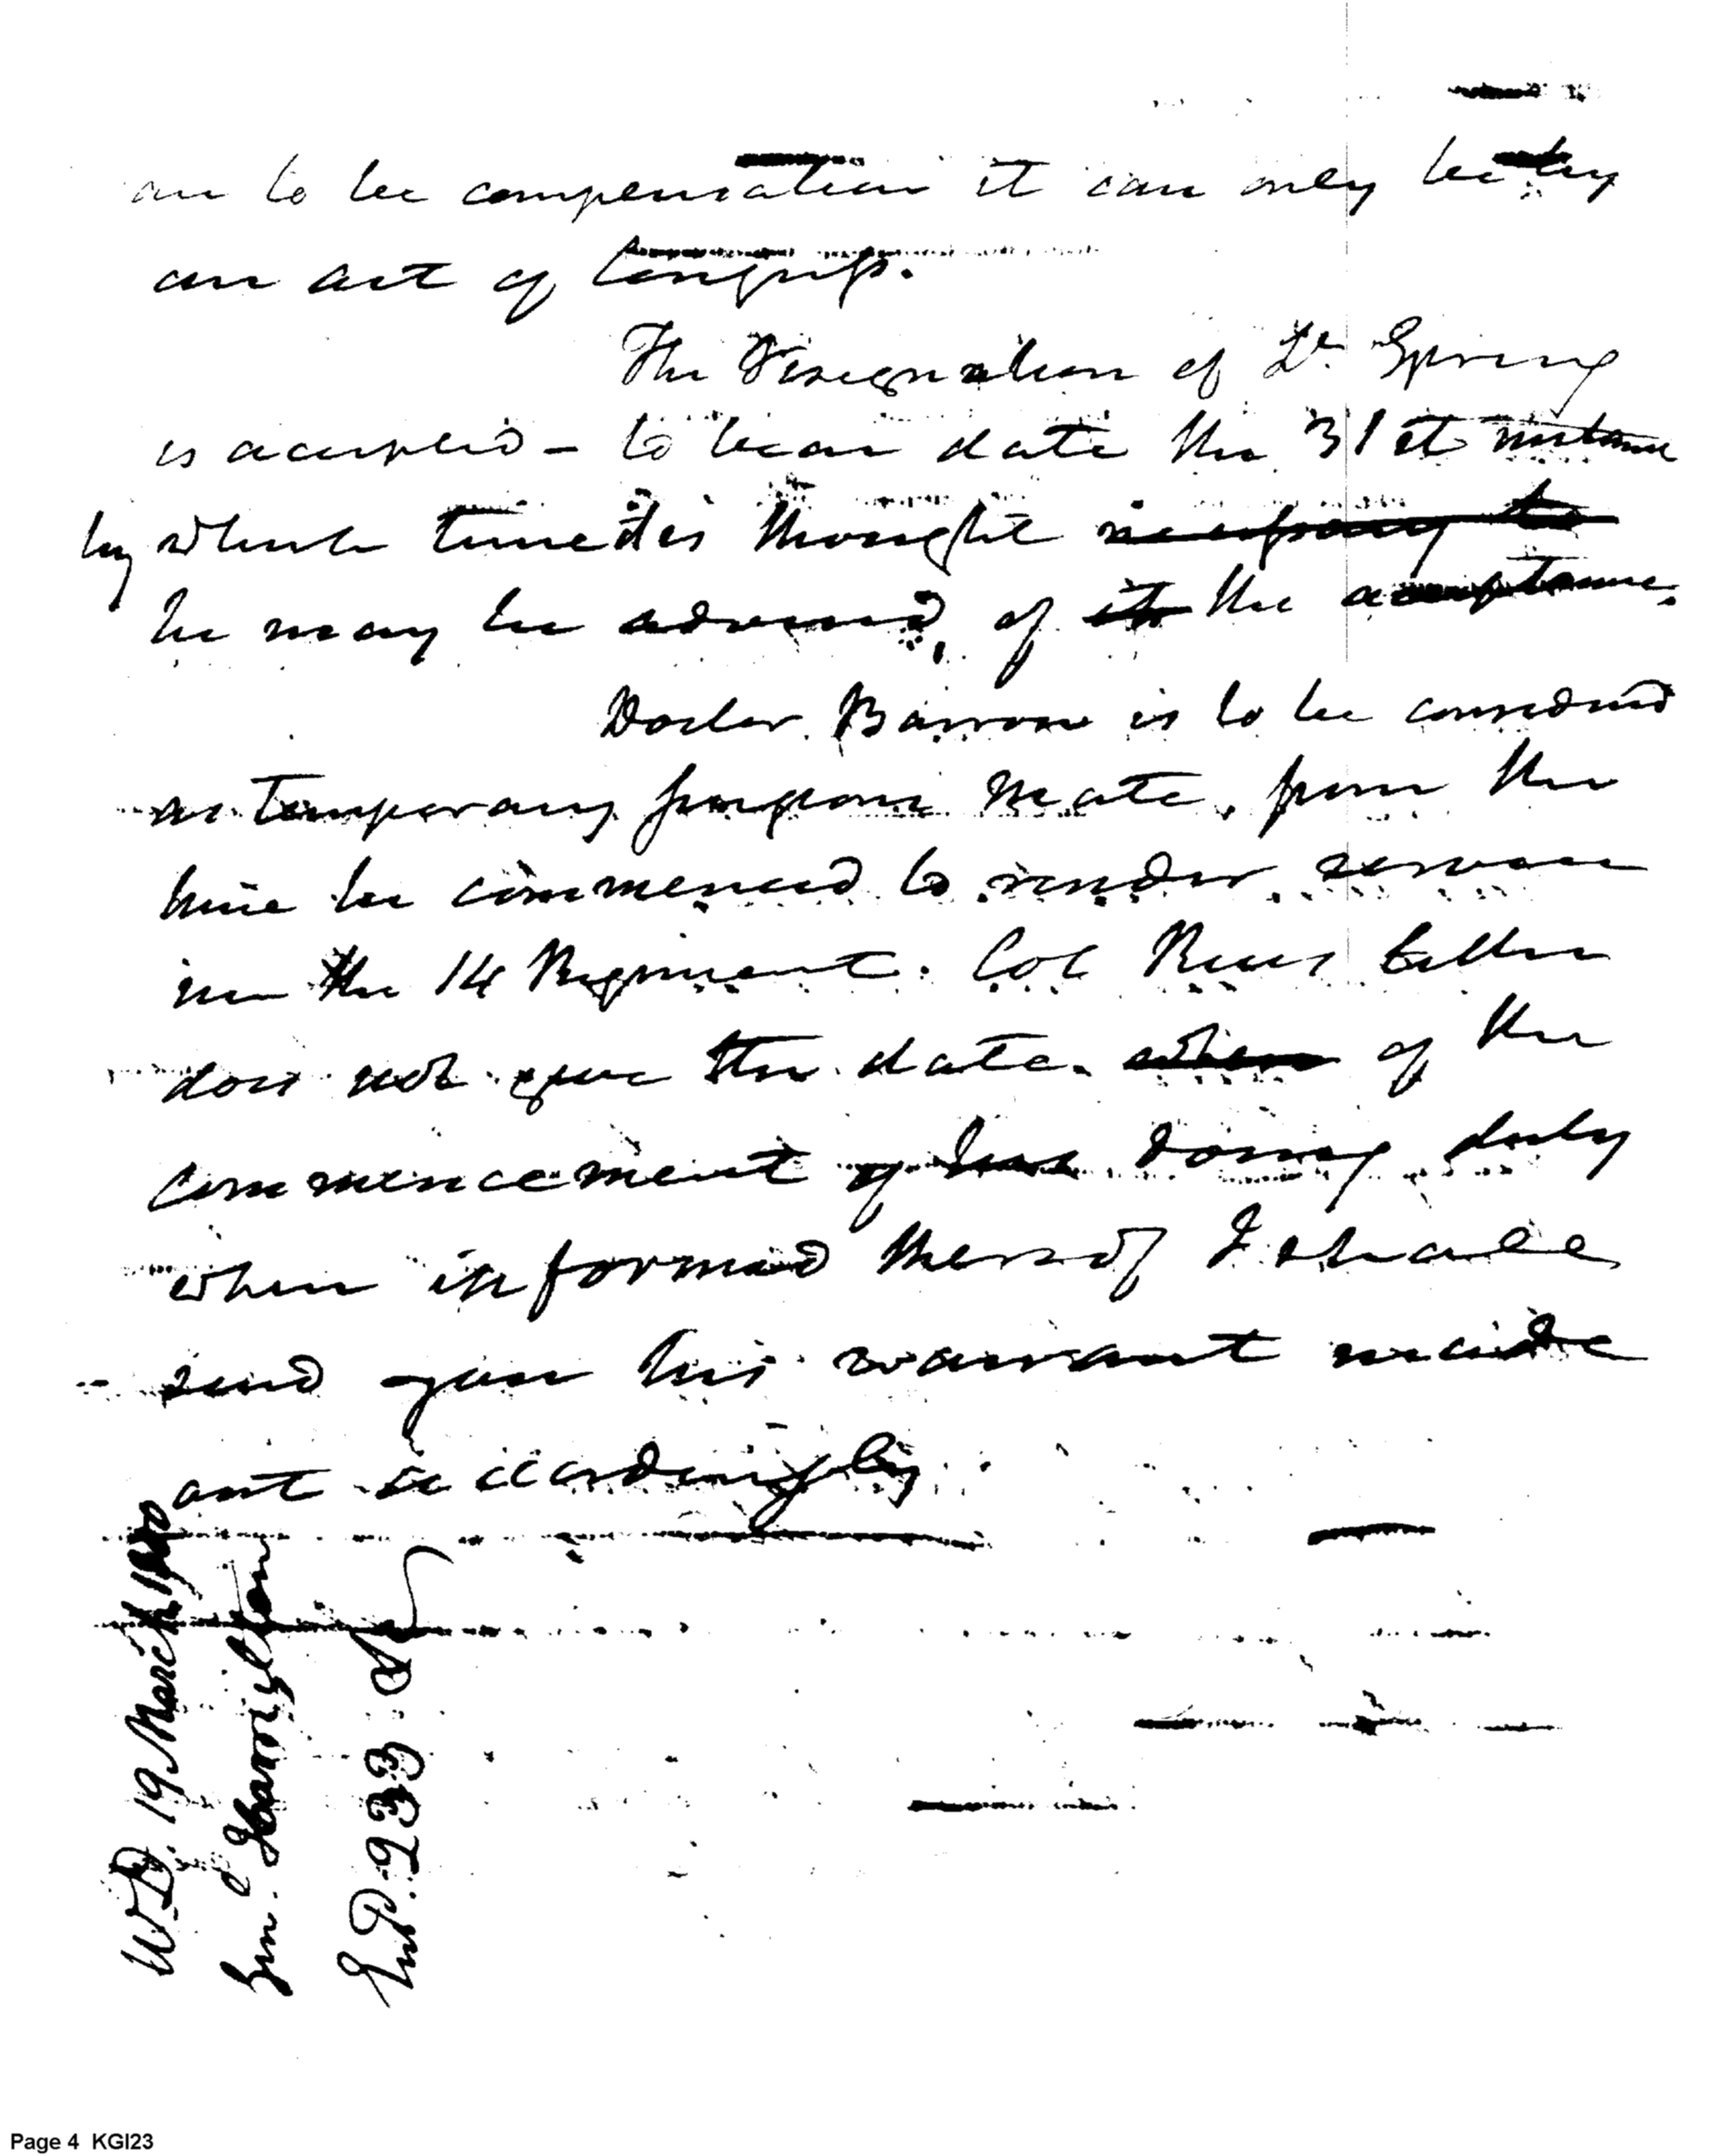 are to be compensation it can only be by
an act of Congress.
The Resignation of Dr. Spring
is accepted – to bear date the 31st instance
by which time it is thought necessary to
he may be advised, of its the acceptance.
Doctor Barrow is to be considered
as Temporary Surgeons Mate, from the
time he commenced to render service
in the 14 Regiment. Col Rices letter
does not give the date. when of the
commencement of his doing duty
when informed thereof I shall
send you his warrant made
out accordingly.
WD. 19 March 1800
Gen. Hamilton
Ent P. 233
Page 4 KGI23